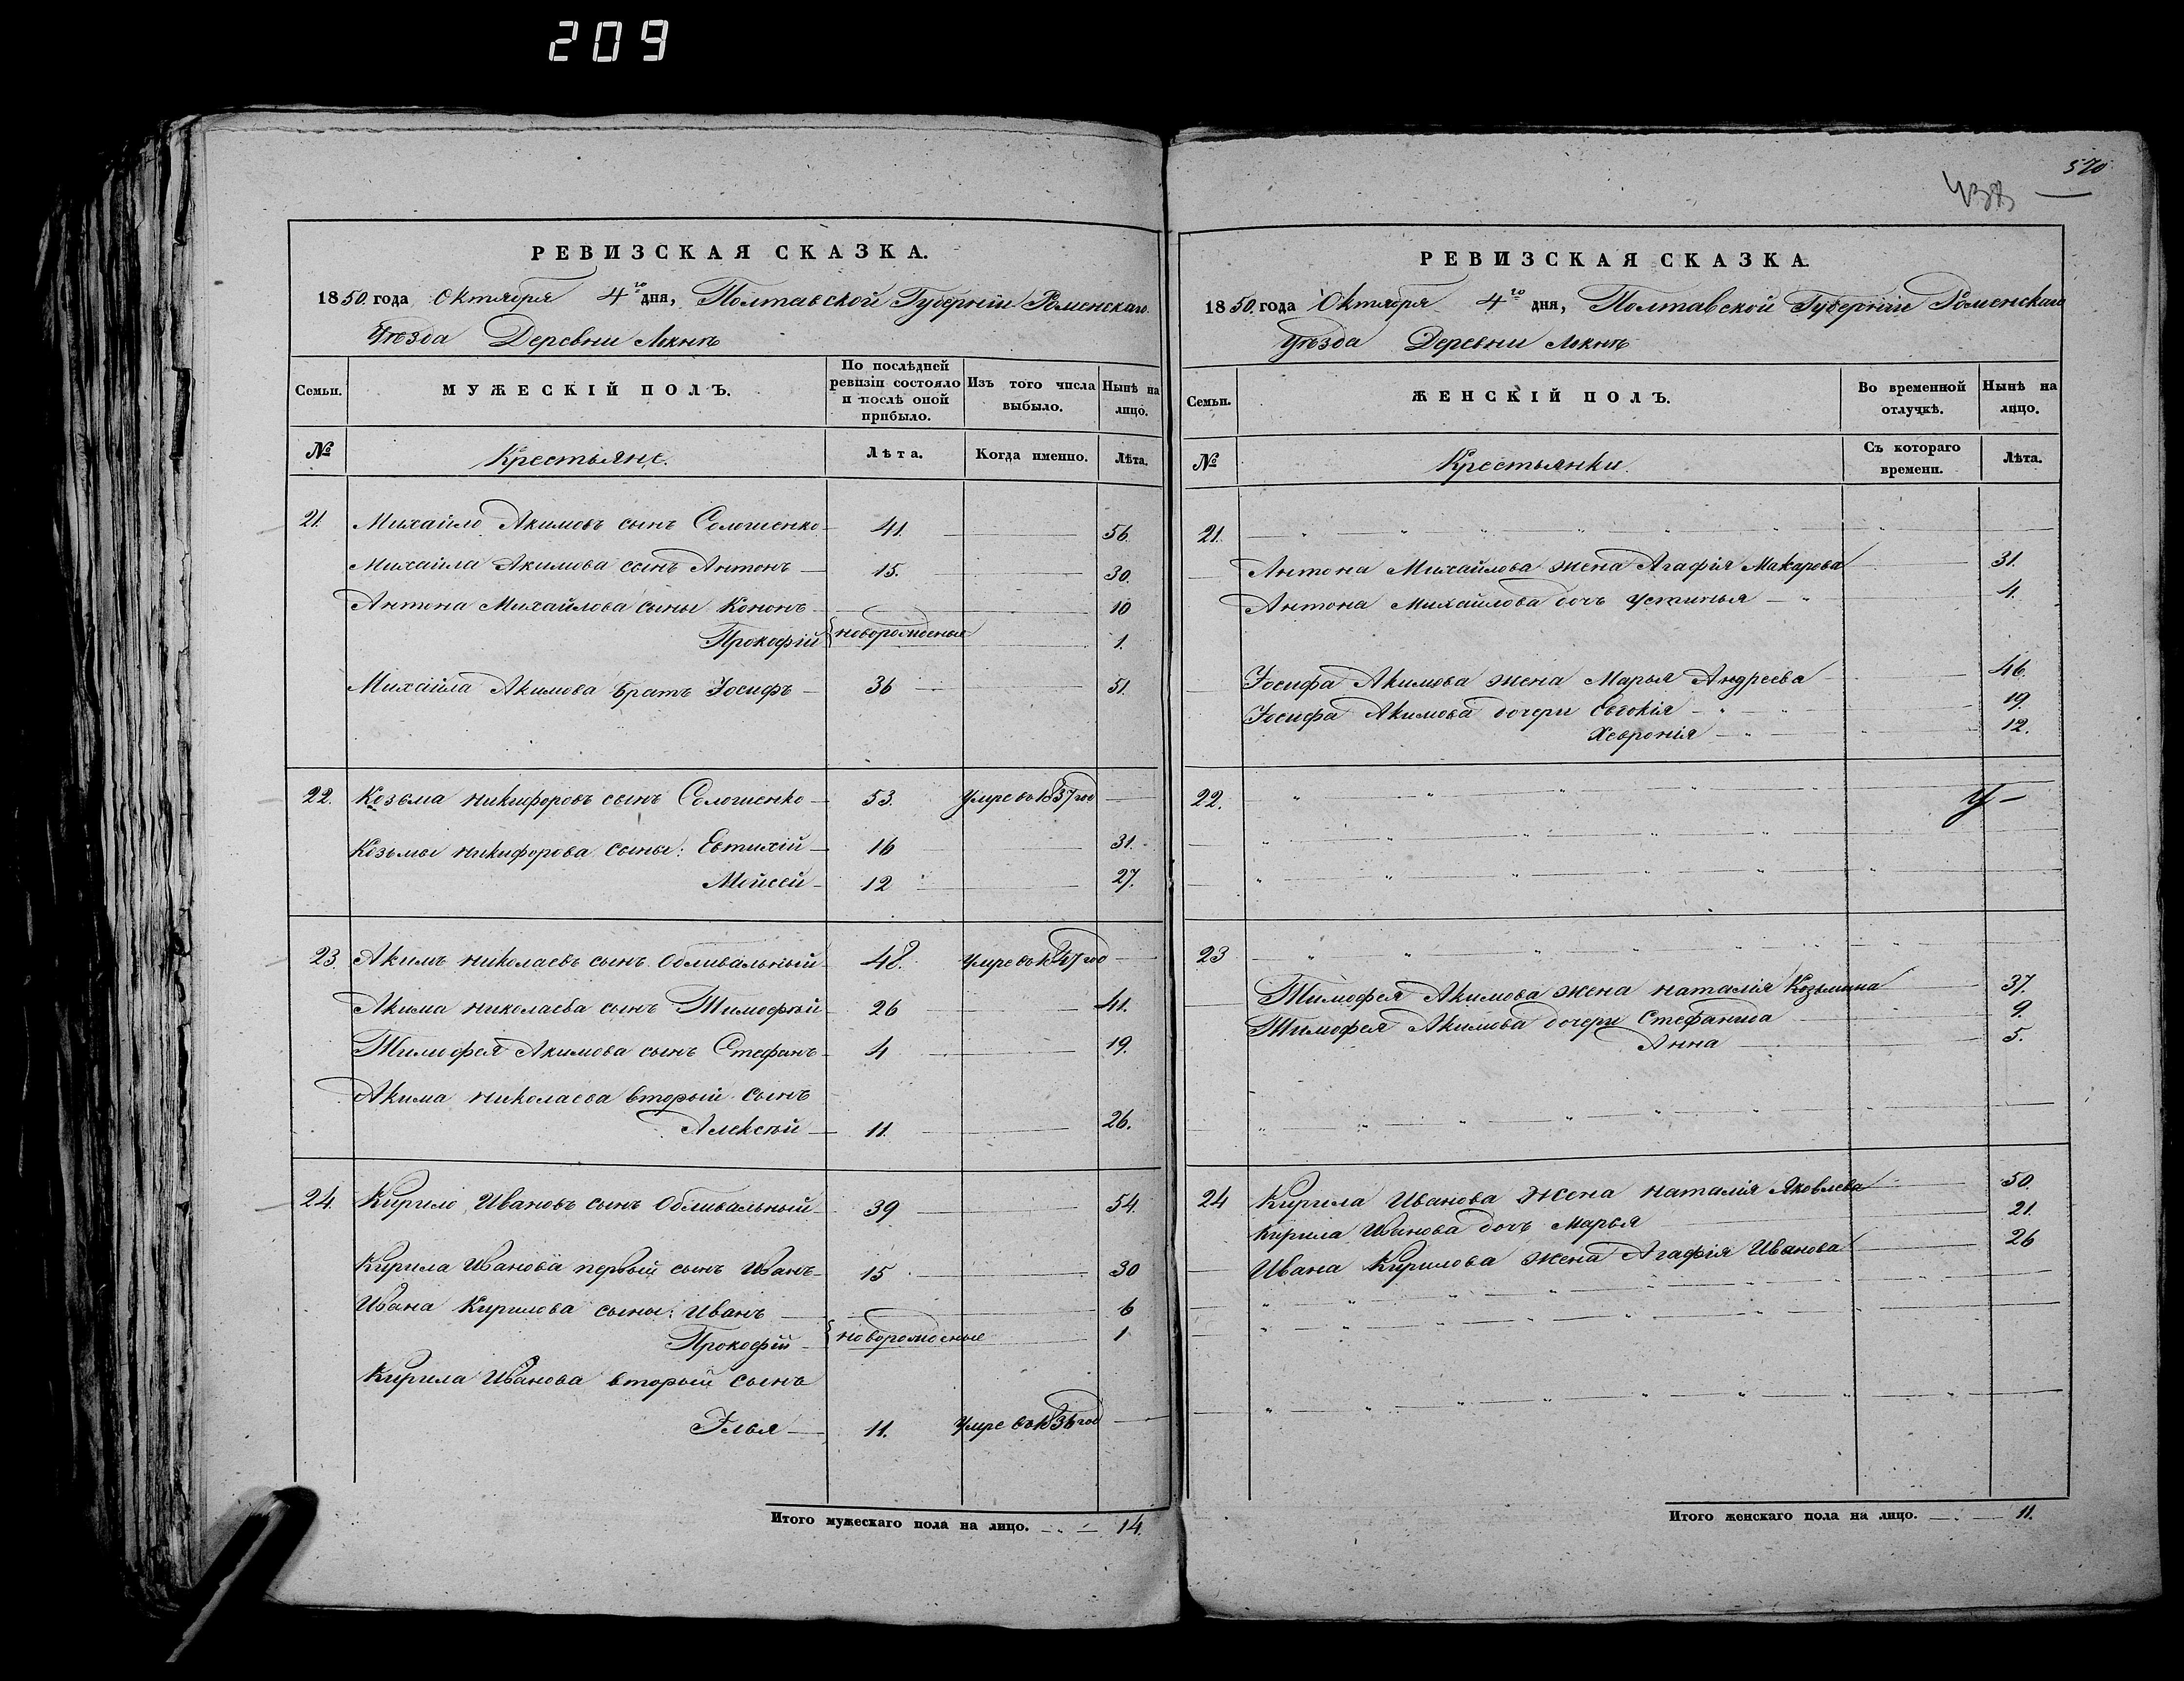 209
РЕВИЗСКАЯ СКАЗКА.
1850. года Октября 4го дня, Полтавской Губерніи Роменскаго
Уѣзда Деревни
Семьи. МУЖЕСКІЙ ПОЛЪ. По послѣдней ревизіи состояло и послѣ оной прибыло. Изъ того числа выбыло. Нынѣ на лицо.
№ Крестьяне. Лѣта. Когда именно. Лѣта.
21. Михайло Акимовъ сынъ 41. 56
Михайла Акимова сынъ Антонъ 15. 30.
Антона Михайлова сыны Кононъ 10
Прокофій новорожденные 1.
Михайла Акимова братъ Іосифъ 36 51.
22. Козьма Никифоровъ сынъ 53. Умре въ 1837 год
Козьмы Никифорова сыны: Евтихій 16 31.
Мойсей 12 27.
23. Акимъ Николаевъ сынъ Обливальный 48. Умре въ 1847 год
Акима Николаева сынъ Тимофѣй 26 41.
Тимофея Акимова сынъ Стефанъ 4 19.
Акима Николаева вторый сынъ
Алексѣй 11. 26.
24. Кирило Ивановъ сынъ Обливальный 39 54.
Кирила Иванова первый сынъ Иванъ 15 30
Ивана Кирилова сыны: Иванъ 6
Прокофій новорожденные 1
Кирила Иванова вторый сынъ
Илья 11. Умре въ 1836 год
Итого мужескаго пола на лицо. 14.
570
РЕВИЗСКАЯ СКАЗКА.
1850. года Октября 4го дня, Полтавской Губерніи Роменскаго
Уѣзда Деревни
Семьи. ЖЕНСКІЙ ПОЛЪ. Во временной отлучкѣ. Нынѣ на лицо.
№ Крестьянки. Съ котораго времени. Лѣта.
21.
Антона Михайлова жена Агафія Макарова 31.
Антона Михайлова дочь Устинья 4.
Іосифа Акимова жена Марья Андреева 46.
Іосифа Акимова дочери Евдокія 19.
Хевронія 12.
22.
23
Тимофея Акимова жена Наталія Козьмина 37.
Тимофея Акимова дочери Стефанида 9.
Анна 5.
24 Кирила Иванова жена Наталія Яковлева 50.
Кирила Иванова дочь Марья 21.
Ивана Кирилова жена Агафія Иванова 26
Итого женскаго пола на лицо. 11.